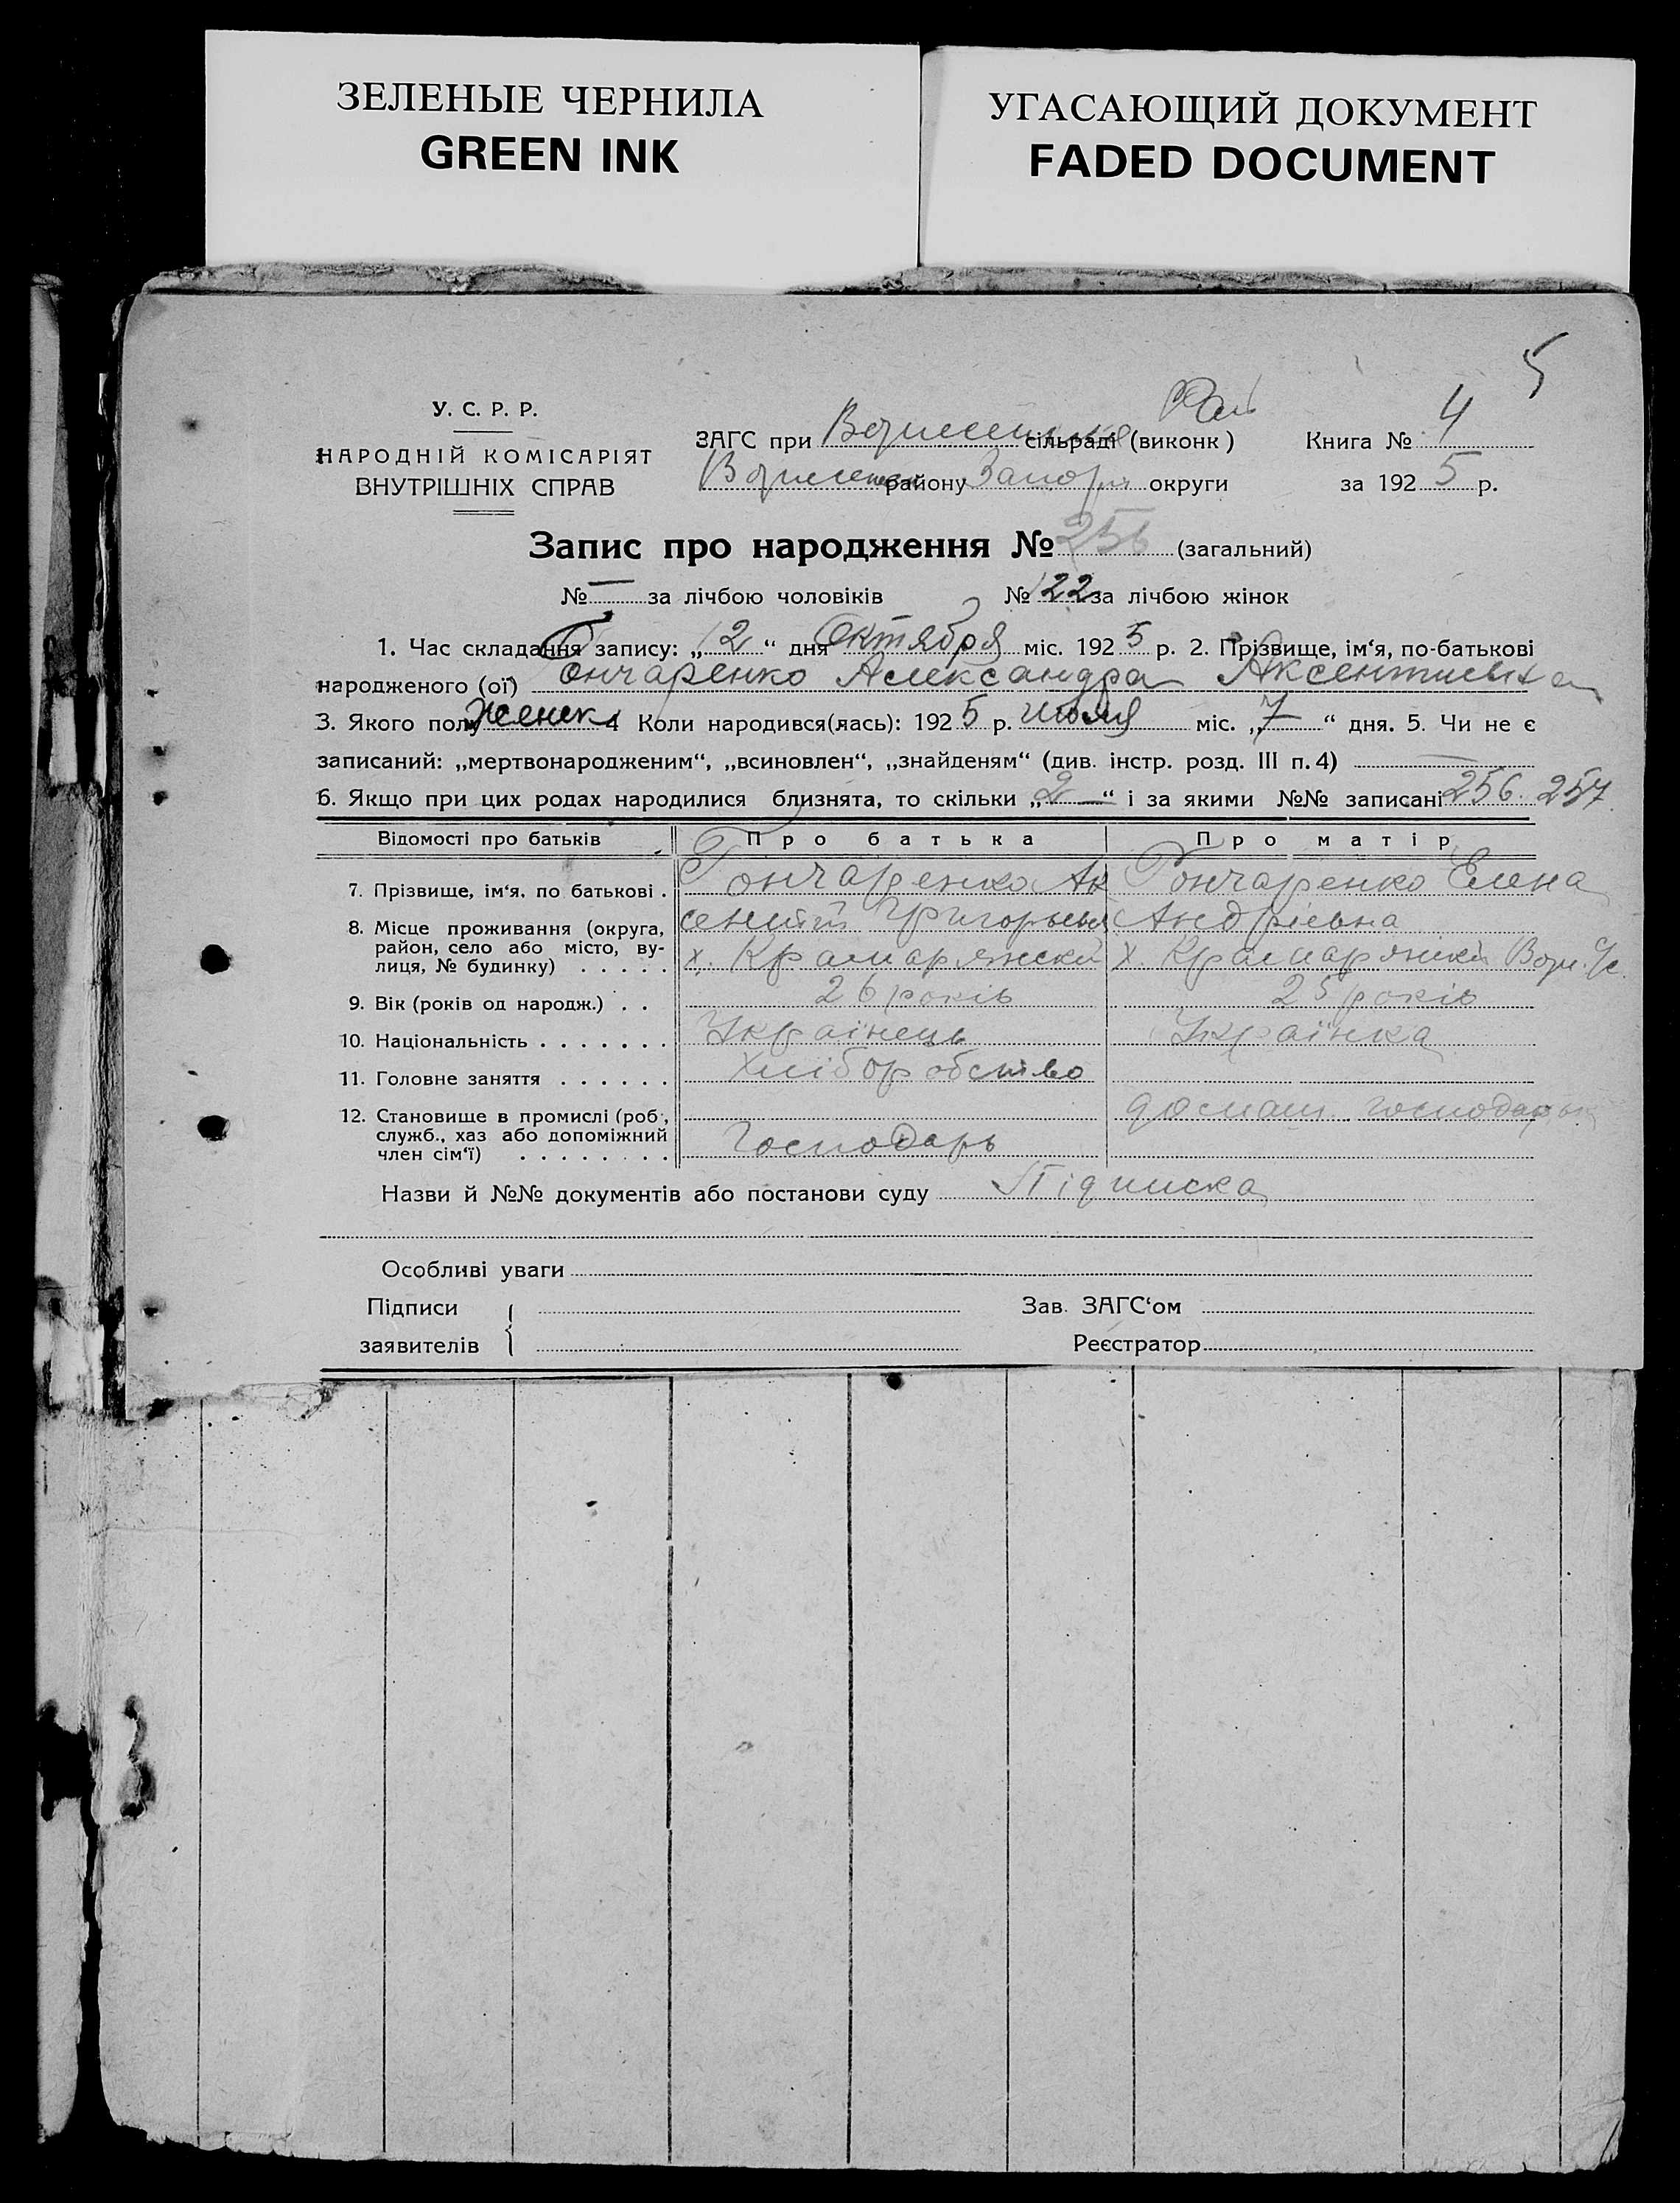 ЗЕЛЕНЫЕ ЧЕРНИЛА
GREEN INK
УГАСАЮЩИЙ ДОКУМЕНТ
FADED DOCUMENT
5
У. С. Р. Р.
НАРОДНІЙ КОМІСАРІЯТ
ВНУТРІШНІХ СПРАВ
ЗАГС при сільраді (виконк) Книга № 4
району округи за 1925 р.
Запис про народження № 256 (загальний)
№ — за лічбою чоловіків № 122 за лічбою жінок
1. Час складання запису: „12“ дня Октября міс. 1925 р. 2. Прізвище, ім‘я, по-батькові
народженого (ої) Гончаренко Александра
3. Якого полу Женск 4 Коли народився(лась): 1925 р. июля міс. „7“ дня. 5. Чи не є
записаний: „мертвонародженим“, „всиновлен“, „знайденям“ (див. інстр. розд. III п. 4) —
6. Якщо при цих родах народилися близнята, то скільки „2“ і за якими №№ записані 256. 257.
Відомості про батьків Про батька Про матір
7. Прізвище, ім‘я, по батькові . Гончаренко Ак Гончаренко Елена
сентий Андріевна
8. Місце проживання (округа,
район, село або місто, ву-
лиця, № будинку) . . . . . х. х.
9. Вік (років од народж.) . . 26 років 25 років
10. Національність . . . . . . . Українець Українка
11. Головне заняття . . . . . . Хліборобство
12. Становище в промислі (роб.,
служб., хаз або допоміжний
член сім‘ї) . . . . . . . . Господарь
Назви й №№ документів або постанови суду Підписка
Особливі уваги
Підписи Зав. ЗАГС‘ом
заявителів Реєстратор